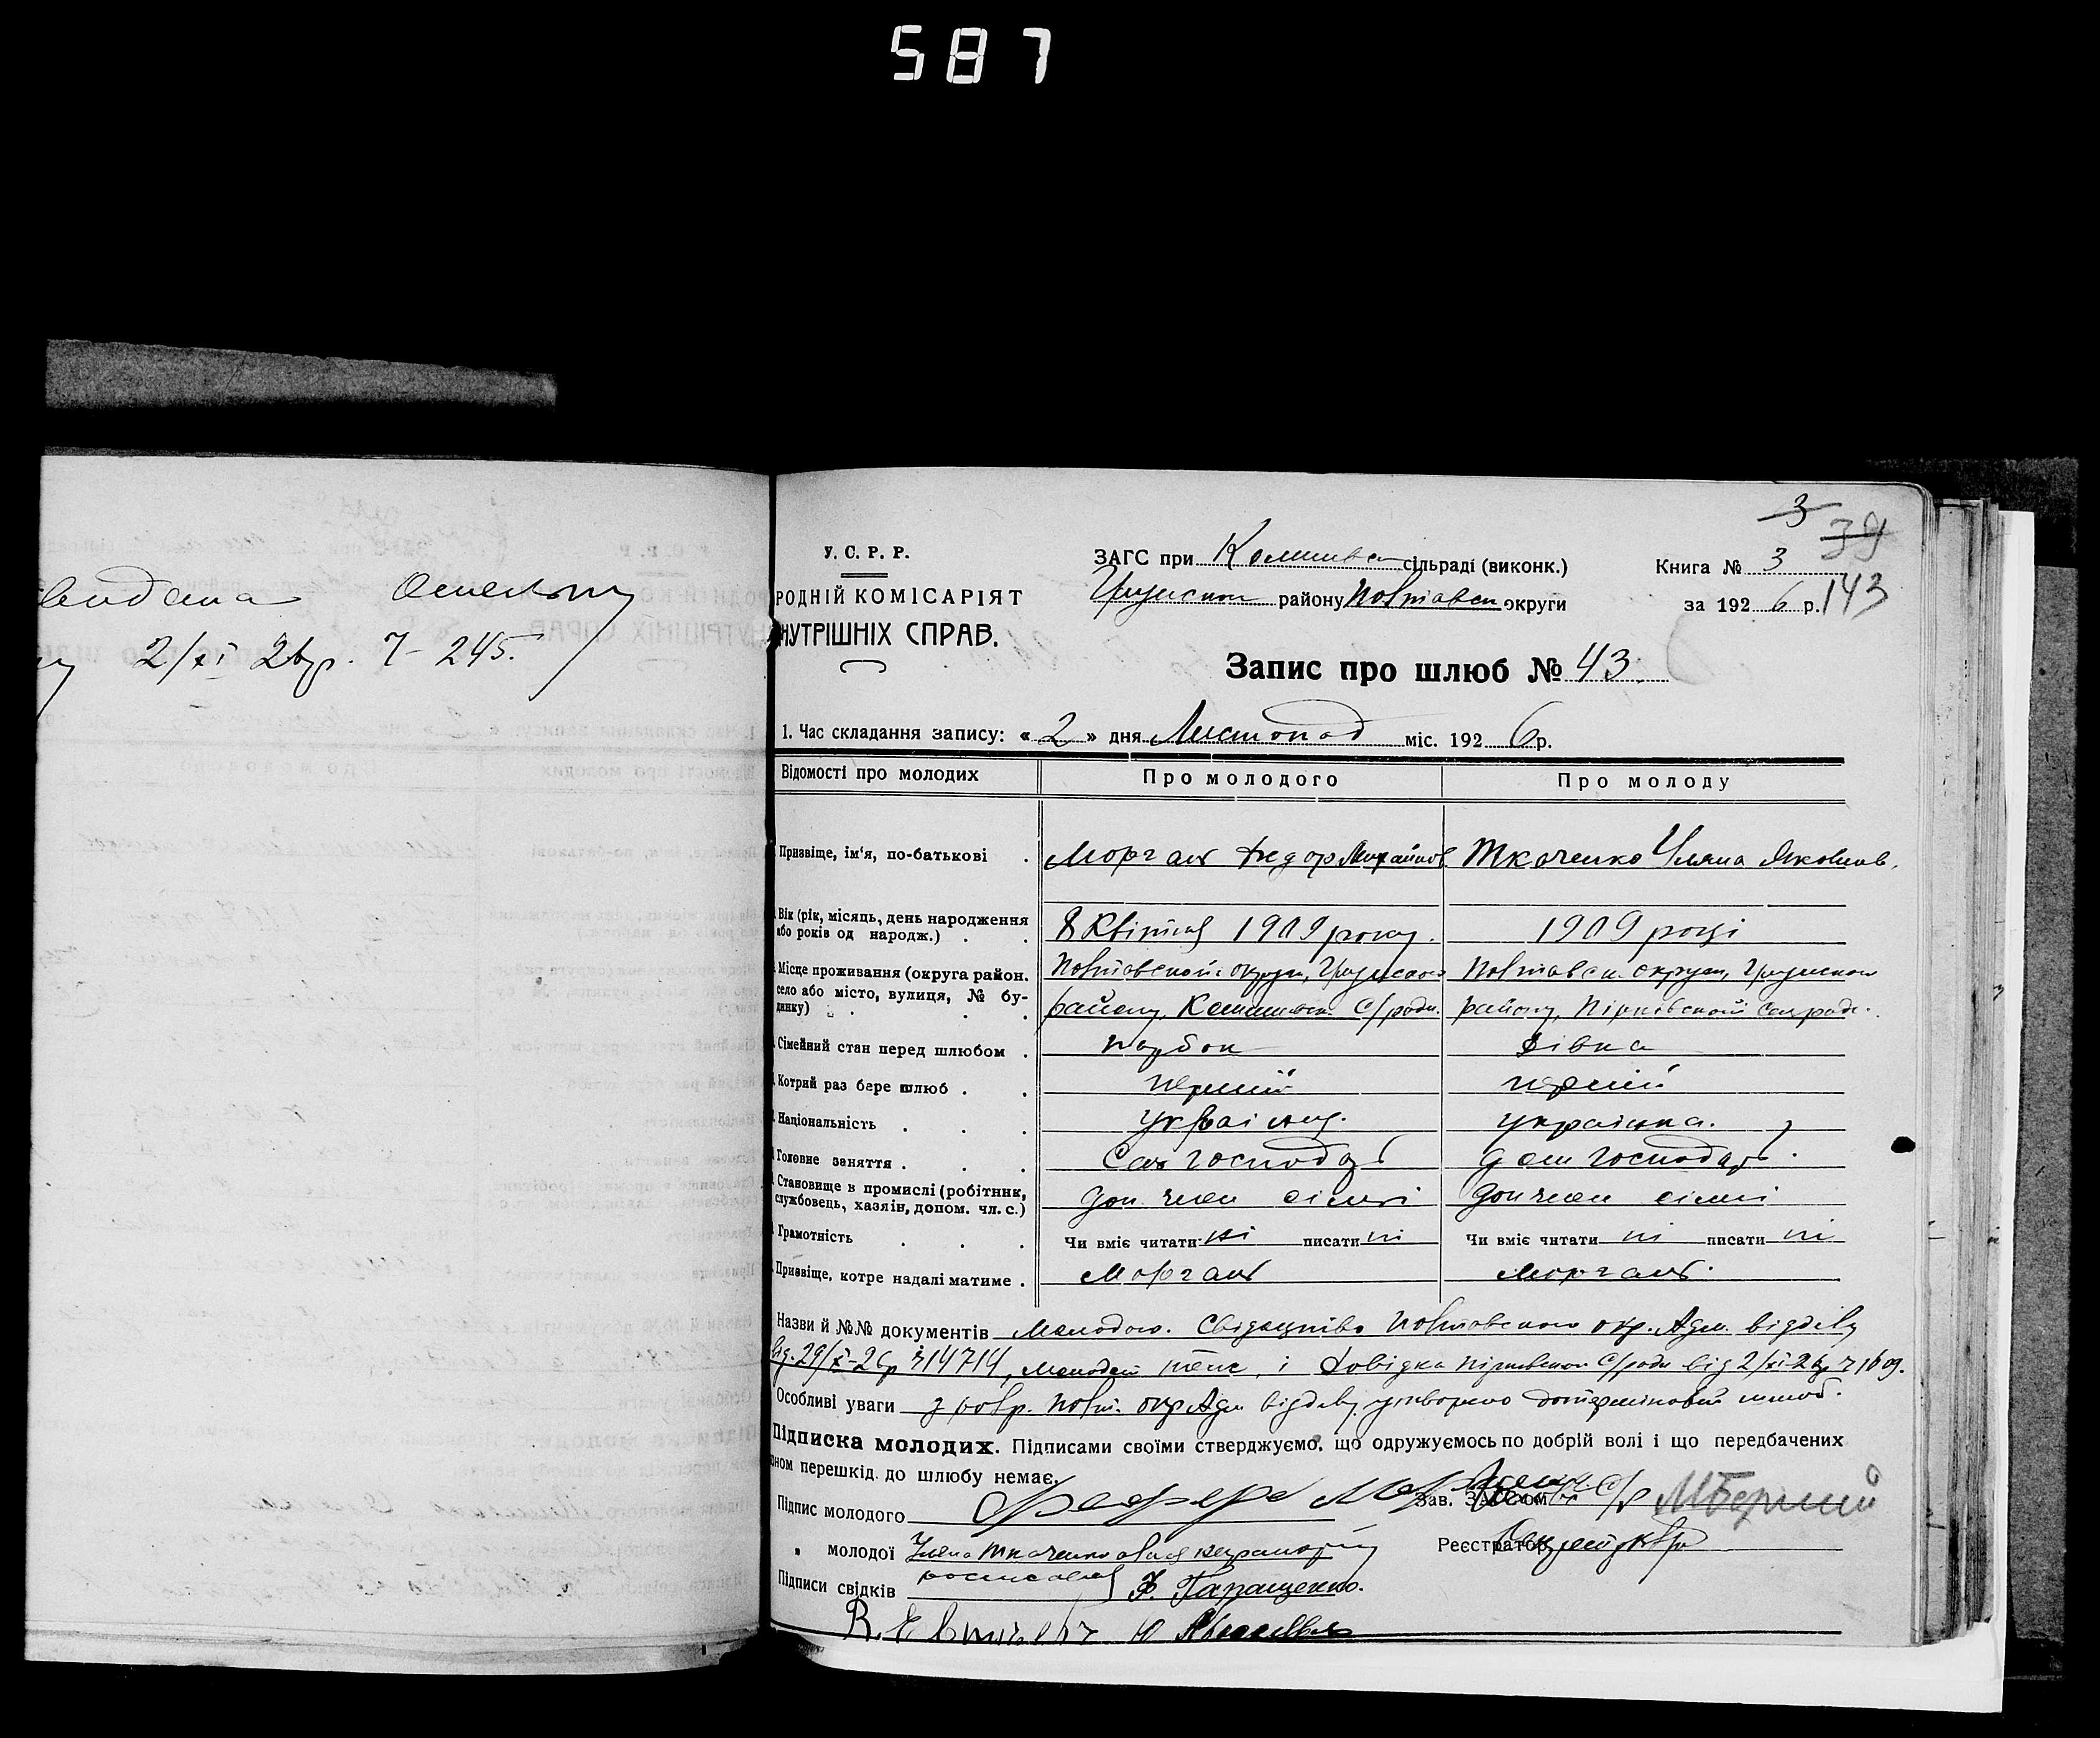 587
3
39
143
2/XI 26р. 7- 245.
У. С. Р. Р.
РОДНІЙ КОМІСАРІЯТ
НУТРІШНІХ СПРАВ.
ЗАГС при сільраді (виконк.)
району Полтавськ округи
Книга № 3
за 192 6 р.
Запис про шлюб № 43.
1. Час складання запису: « 2 » дня Листопад міс. 192 6 р.
Відомості про молодих Про молодого Про молоду
Призвіще, ім'я, по-батькові . Моргаль Федор Михайлов. Ткаченко Уляна Яковлів.
Вік (рік, місяць, день народження або років од народж.) . . 8 Квітня 1909 року. 1909 році
Місце проживання (округа район. Полтавської округи, Полтавськ. округи,
село або місто, вулиця, № бу- динку) . . . району, С/ради. району, Пірківської сілради.
Сімейний стан перед шлюбом . парубок дівка
Котрий раз бере шлюб . . перший перший
Національність . . . українец. українка.
Головне заняття . . . Сель господар дом господар.
Становище в промислі (робітник, службовець, хазяїн, допом. чл. с.) доп. член сімьі доп член сімьі
Грамотність . . . Чи вміє читати ні писати ні Чи вміє читати ні писати ні
Призвіще, котре надалі матиме . Моргаль Моргаль.
Назви й №№ документів Молодого. Свідоцтво Полтавського окр. Адм. відділу
від. 29/X-26р ч 14714, Молодой теж і Довідка С/ради від 2/XI-26р ч 1609.
Особливі уваги з розр. Полт. окр Адм відділу утворено дотерміновий шлюб.
Підписка молодих. Підписами своїми стверджуємо, що одружуємось по добрій волі і що передбачених
оном перешкід до шлюбу немає.
Підпис молодого Зав. ЗАГСом С/р
„ молодої Уляна Ткаченко Реєстратор
Підписи свідків Ф. Таращенко.